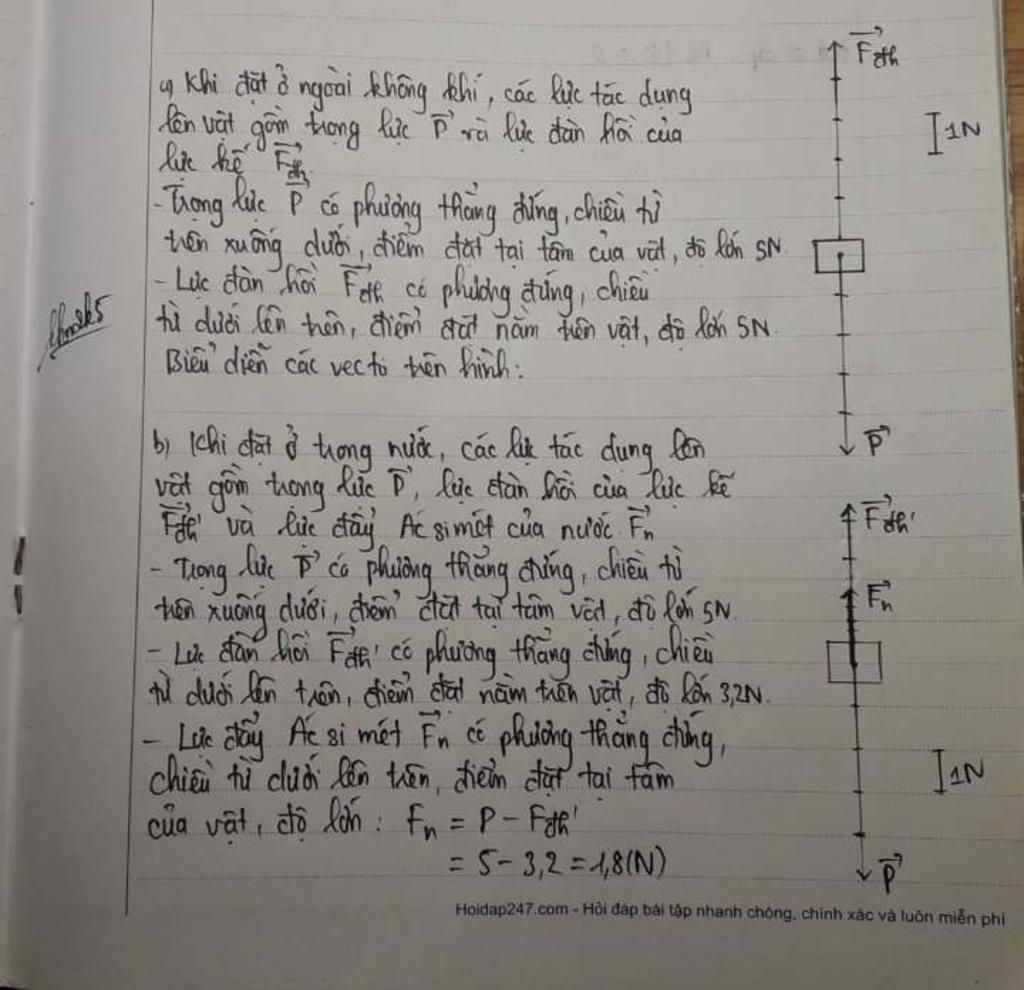 a) Khi đặt ở ngoài không khí, các lực tác dụng
lên vật gồm trọng lực P và lực đàn hồi của
lực kế Fđh
- Trọng lực P có phương thẳng đứng, chiều từ
trên xuống dưới, điểm đặt tại tâm của vật, độ lớn 5N.
- Lực đàn hồi Fđh có phương đứng, chiều
từ dưới lên trên, điểm đặt nằm trên vật, độ lớn 5N.
Biểu diễn các vectơ trên hình:
Fđh
1N
P
b) Khi đặt ở trong nước, các lực tác dụng lên
vật gồm trọng lực P, lực đàn hồi của lực kế
Fđh' và lực đẩy Ác si mét của nước Fn
- Trọng lực P có phương thẳng đứng, chiều từ
trên xuống dưới, điểm đặt tại tâm vật, độ lớn 5N.
- Lực đàn hồi Fđh' có phương thẳng đứng, chiều
từ dưới lên trên, điểm đặt nằm trên vật, độ lớn 3,2N.
- Lực đẩy Ác si mét Fn có phương thẳng đứng,
chiều từ dưới lên trên, điểm đặt tại tâm
của vật, độ lớn: Fn = P - Fđh'
= 5 - 3,2 = 1,8(N)
Fđh'
Fn
1N
P
Hoidap247.com - Hỏi đáp bài tập nhanh chóng, chính xác và luôn miễn phí